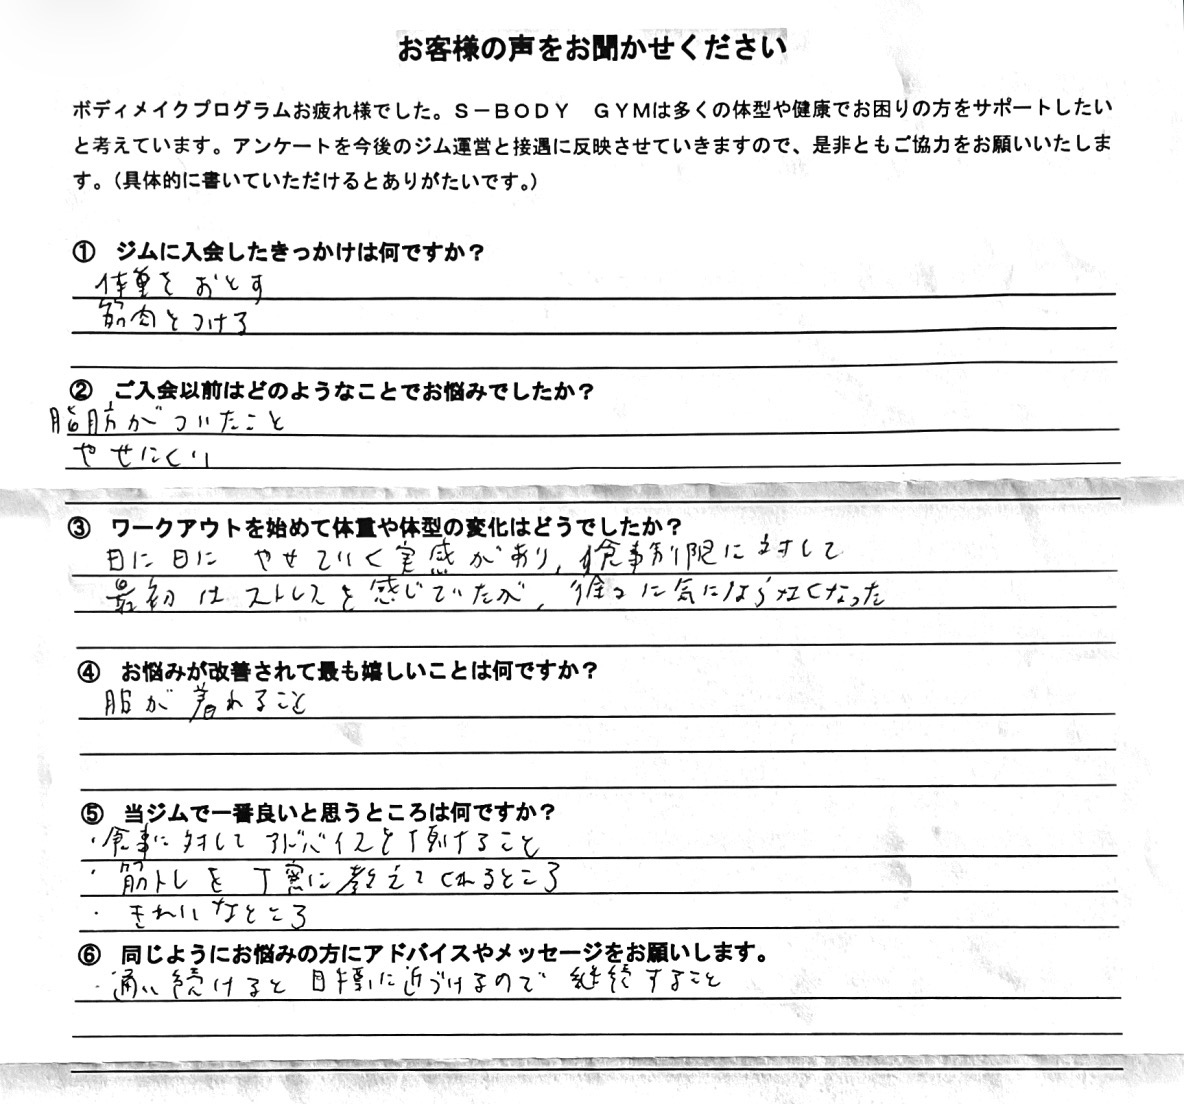 お客様の声をお聞かせください
ボディメイクプログラムお疲れ様でした。S－BODY　GYMは多くの体型や健康でお困りの方をサポートしたい
と考えています。アンケートを今後のジム運営と接遇に反映させていきますので、是非ともご協力をお願いいたしま
す。（具体的に書いていただけるとありがたいです。）
①　ジムに入会したきっかけは何ですか？
体重を おとす
筋肉を つける
②　ご入会以前はどのようなことでお悩みでしたか？
脂肪が ついたこと
やせにくい
③　ワークアウトを始めて体重や体型の変化はどうでしたか？
日に日に やせていく実感があり、食事制限に対して
最初は ストレスを感じていたが、徐々に気にならなくなった
④　お悩みが改善されて最も嬉しいことは何ですか？
服が 着れること
⑤　当ジムで一番良いと思うところは何ですか？
・食事に対して アドバイスを頂けること
・筋トレを 丁寧に教えてくれるところ
・きれいなところ
⑥　同じようにお悩みの方にアドバイスやメッセージをお願いします。
・通い続けると 目標に近づけるので 継続すること